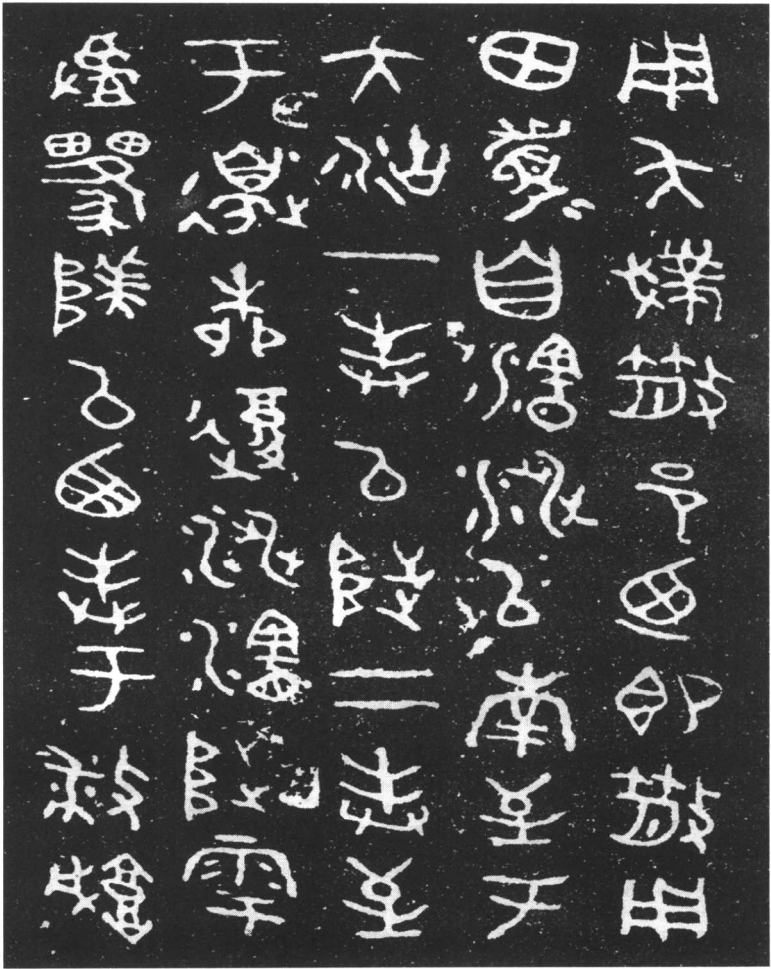 用夨撲散邑廼即散用
田眉自瀗涉以南至于
大沽一奉以陟二奉至
于邊柳復涉瀗陟雩
𠭯以西奉于播城